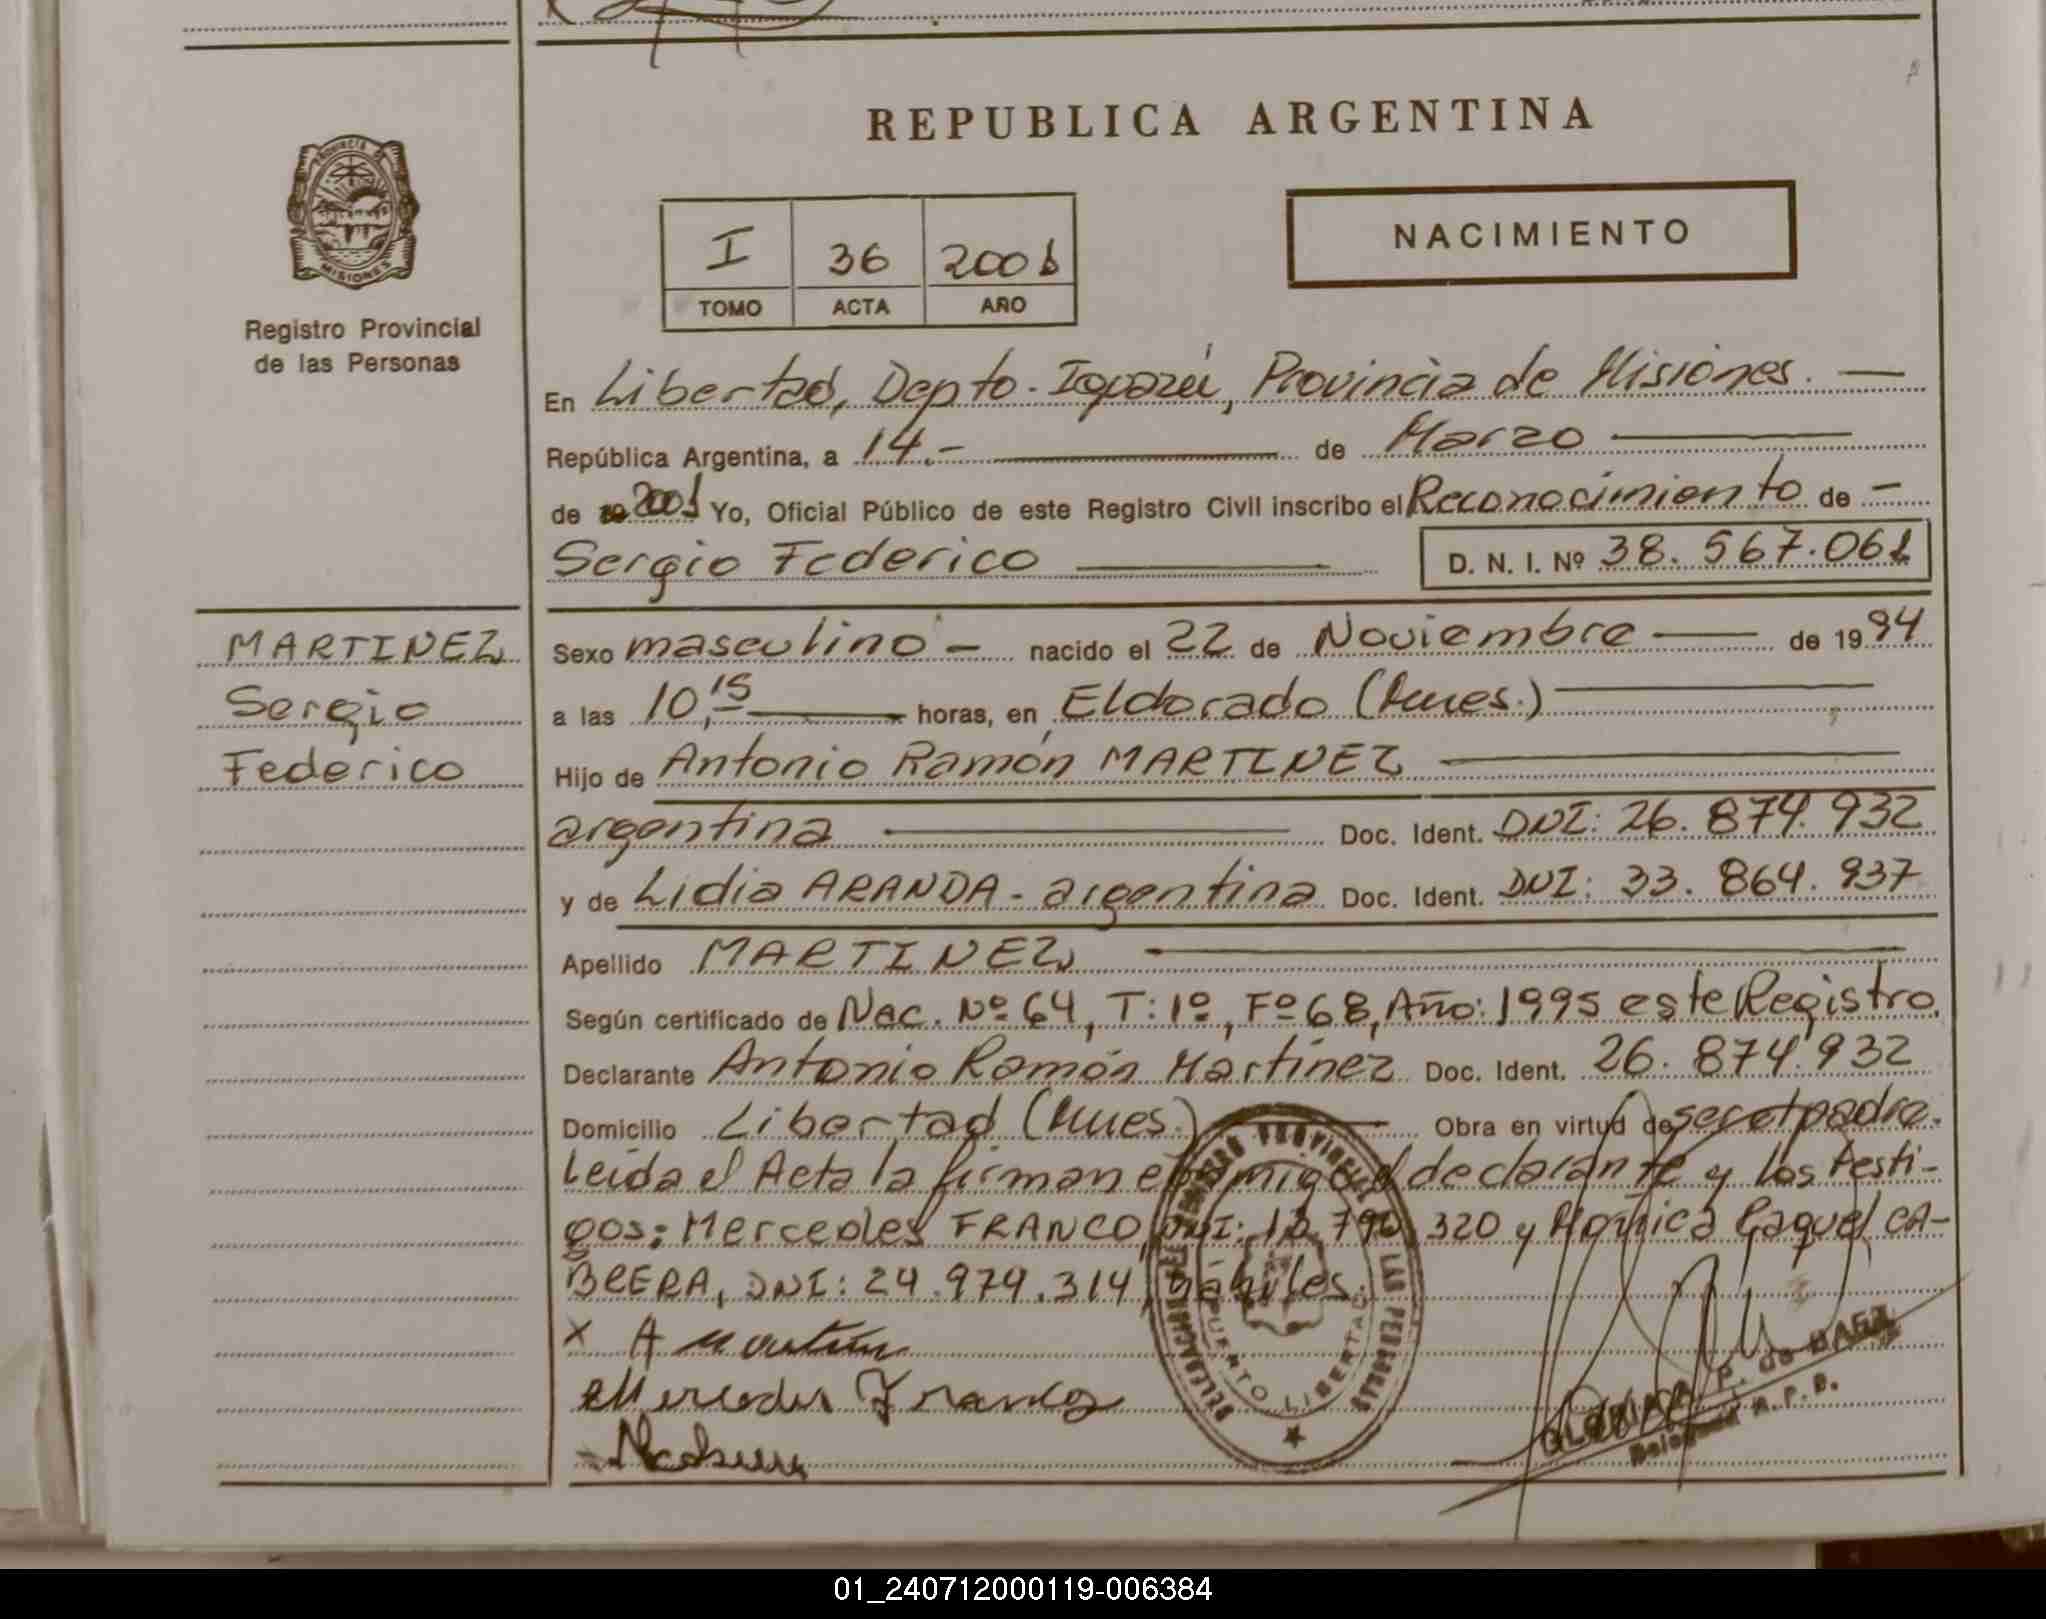 REPUBLICA ARGENTINA
PROVINCIA DE
MISIONES
Registro Provincial
de las Personas
I 36 2001
TOMO ACTA AÑO
NACIMIENTO
En Libertad, Depto. Iguazú, Provincia de Misiones. —
República Argentina, a 14.- — de Marzo —
de 2001 Yo, Oficial Público de este Registro Civil inscribo el Reconocimiento de —
Sergio Federico — D. N. I. Nº 38.567.061
MARTINEZ
Sergio
Federico
Sexo masculino — nacido el 22 de Noviembre — de 1994
a las 10,15 — horas, en Eldorado (Mnes.) —
Hijo de Antonio Ramón MARTINEZ —
argentina — Doc. Ident. DNI: 26.874.932
y de Lidia ARANDA - argentina Doc. Ident. DNI: 33.864.937
Apellido MARTINEZ —
Según certificado de Nac. Nº 64, T: 1º, Fº 68, Año: 1995 este Registro.
Declarante Antonio Ramón Martínez Doc. Ident. 26.874.932
Domicilio Libertad (Mnes.) — Obra en virtud de ser el padre.
Leída el Acta la firman conmigo el declarante y los testi-
gos: Mercedes FRANCO, DNI: 320 y Mónica Raquel CA-
BRERA, DNI: 24.974.314, hábiles.
X A Martinez
Mercedes Franco
DELEGACION DEL REGISTRO PROVINCIAL DE LAS PERSONAS
PUERTO LIBERTAD
P. de
Delegada R. P. P.
01_240712000119-006384